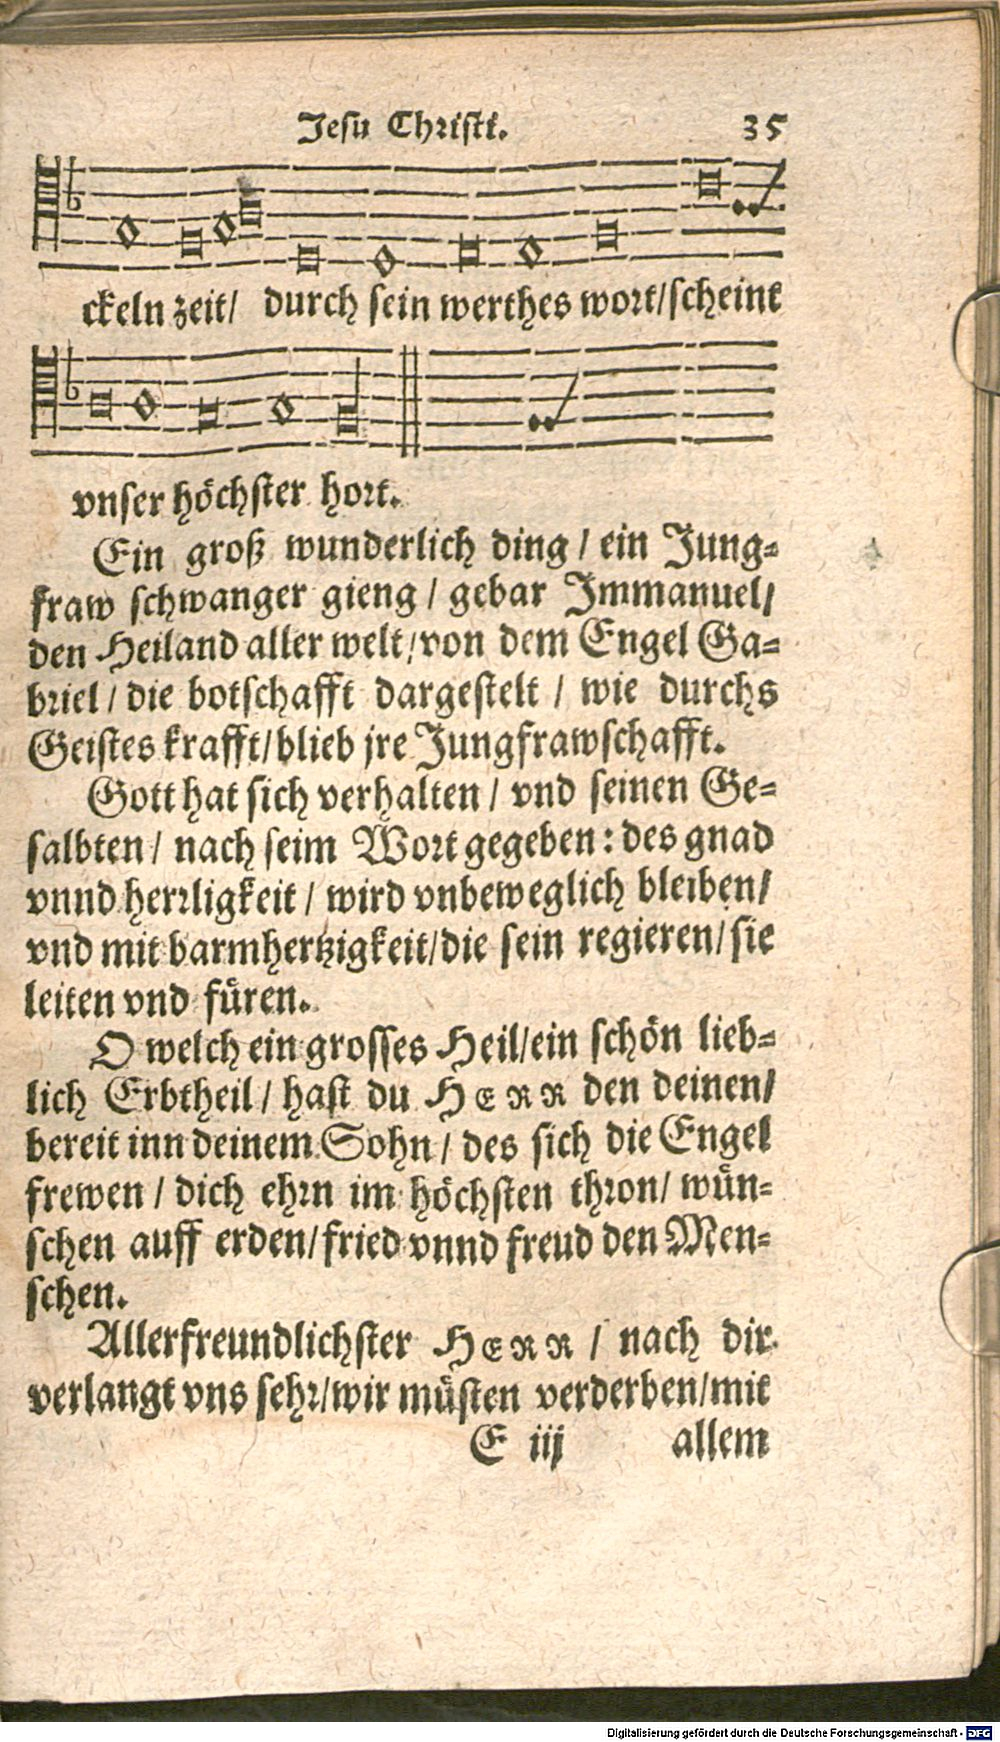 Jesu Christi. 35
ckeln zeit/ durch sein werthes wort/scheint
vnser höchster hort.
Ein groß wunderlich ding / ein Jung-
fraw schwanger gieng / gebar Immanuel/
den Heiland aller welt/von dem Engel Ga-
briel / die botschafft dargestelt / wie durchs
Geistes krafft/blieb jre Jungfrawschafft.
Gott hat sich verhalten / vnd seinen Ge-
salbten / nach seim Wort gegeben: des gnad
vnnd herrligkeit / wird vnbeweglich bleiben/
vnd mit barmhertzigkeit/die sein regieren/sie
leiten vnd füren.
O welch ein grosses Heil/ein schön lieb-
lich Erbtheil / hast du HERR den deinen/
bereit inn deinem Sohn / des sich die Engel
frewen / dich ehrn im höchsten thron/ wün-
schen auff erden/fried vnnd freud den Men-
schen.
Allerfreundlichster HERR / nach dir
verlangt vns sehr/wir müsten verderben/mit
E iij allem
Digitalisierung gefördert durch die Deutsche Forschungsgemeinschaft - DFG